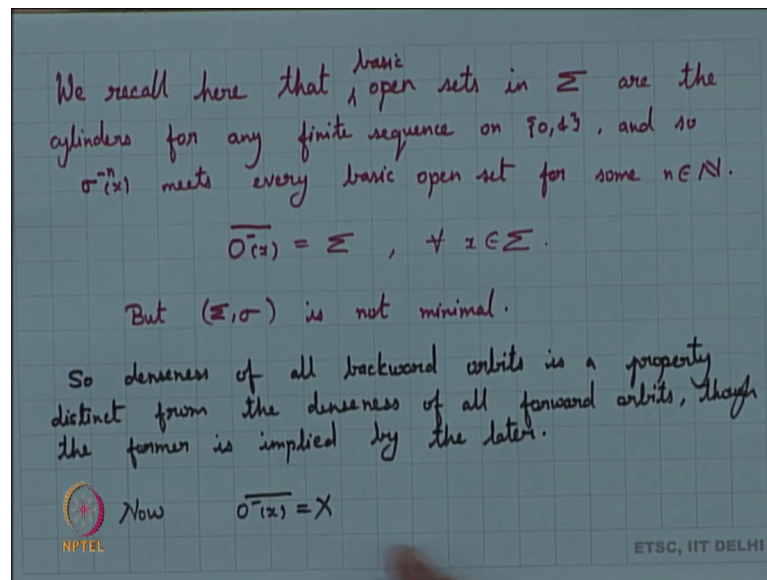 We recall here that basic open sets in Σ are the
cylinders for any finite sequence on {0,1}, and so
σ⁻ⁿ(x) meets every basic open set for some n∈ℕ.
\overline{O⁻(x)} = Σ , ∀ x∈Σ.
But (Σ,σ) is not minimal.
So denseness of all backward orbits is a property
distinct from the denseness of all forward orbits, though
the former is implied by the later.
Now \overline{O⁻(x)} = X
NPTEL
ETSC, IIT DELHI